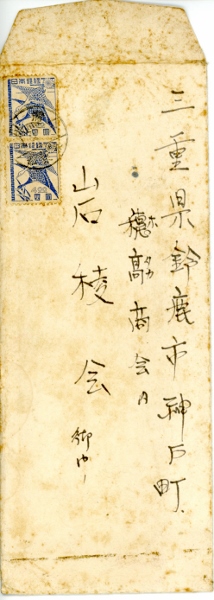 三重県鈴鹿市神戸町、
穂高商会内
ホ タカ
岩稜会 御中
日本郵便
日本郵便